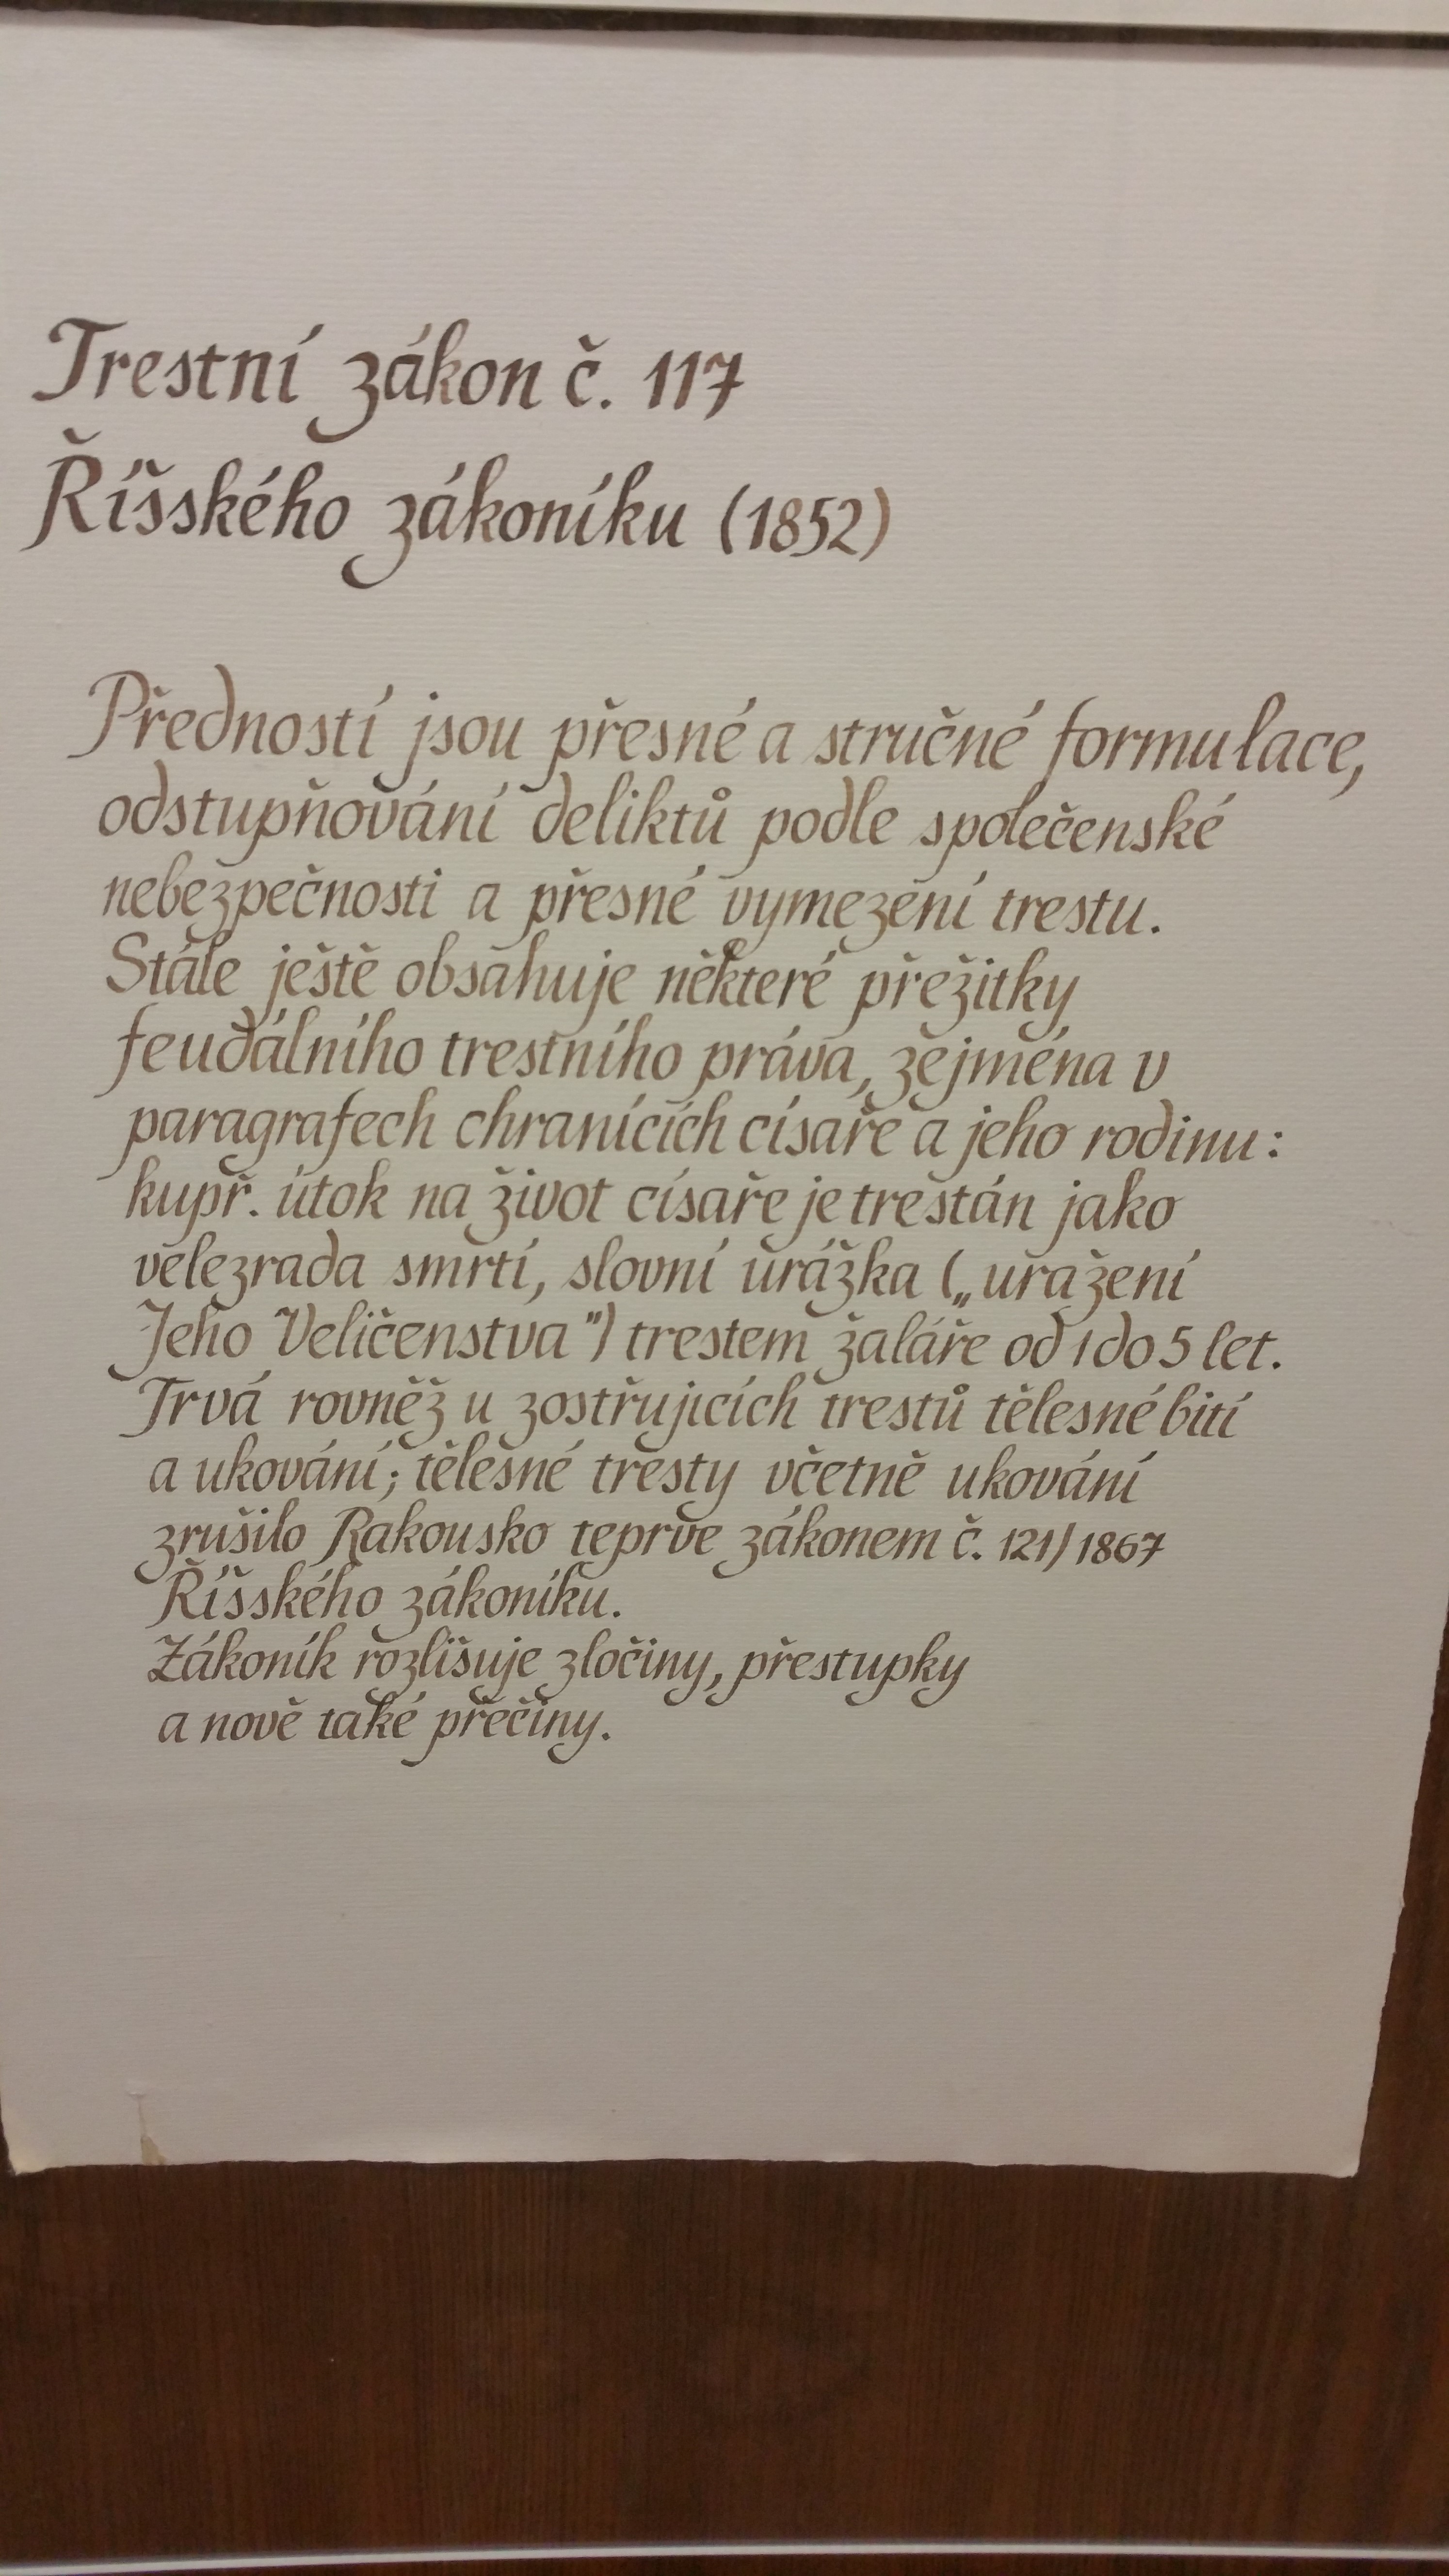 Trestní zákon č. 117
Říšského zákoníku (1852)
Předností jsou přesné a stručné formulace,
odstupňování deliktů podle společenské
nebezpečnosti a přesné vymezení trestu.
Stále ještě obsahuje některé přežitky
feudálního trestního práva, zejména v
paragrafech chranících císaře a jeho rodinu:
kupř. útok na život císaře je trestán jako
velezrada smrtí, slovní urážka („uražení
Jeho Veličenstva") trestem žaláře od 1 do 5 let.
Trvá rovněž u zostřujících trestů tělesné bití
a ukování; tělesné tresty včetně ukování
zrušilo Rakousko teprve zákonem č. 121/1867
Říšského zákoníku.
Zákoník rozlišuje zločiny, přestupky
a nově také přečiny.